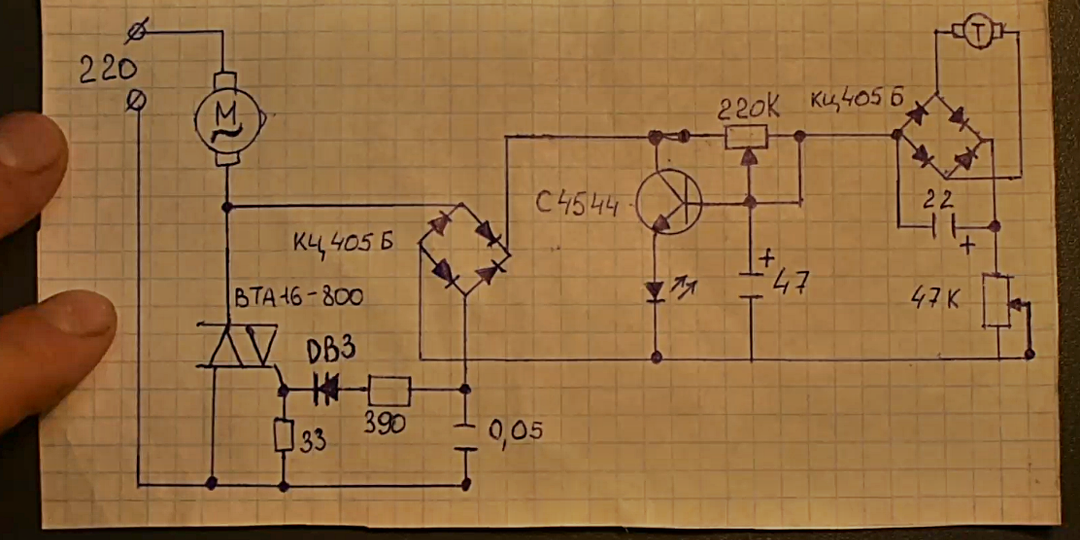 220
M
КЦ405Б
ВТА16-800
DB3
33
390
0,05
C4544
220К
КЦ405Б
Т
22
+
+
47
47К